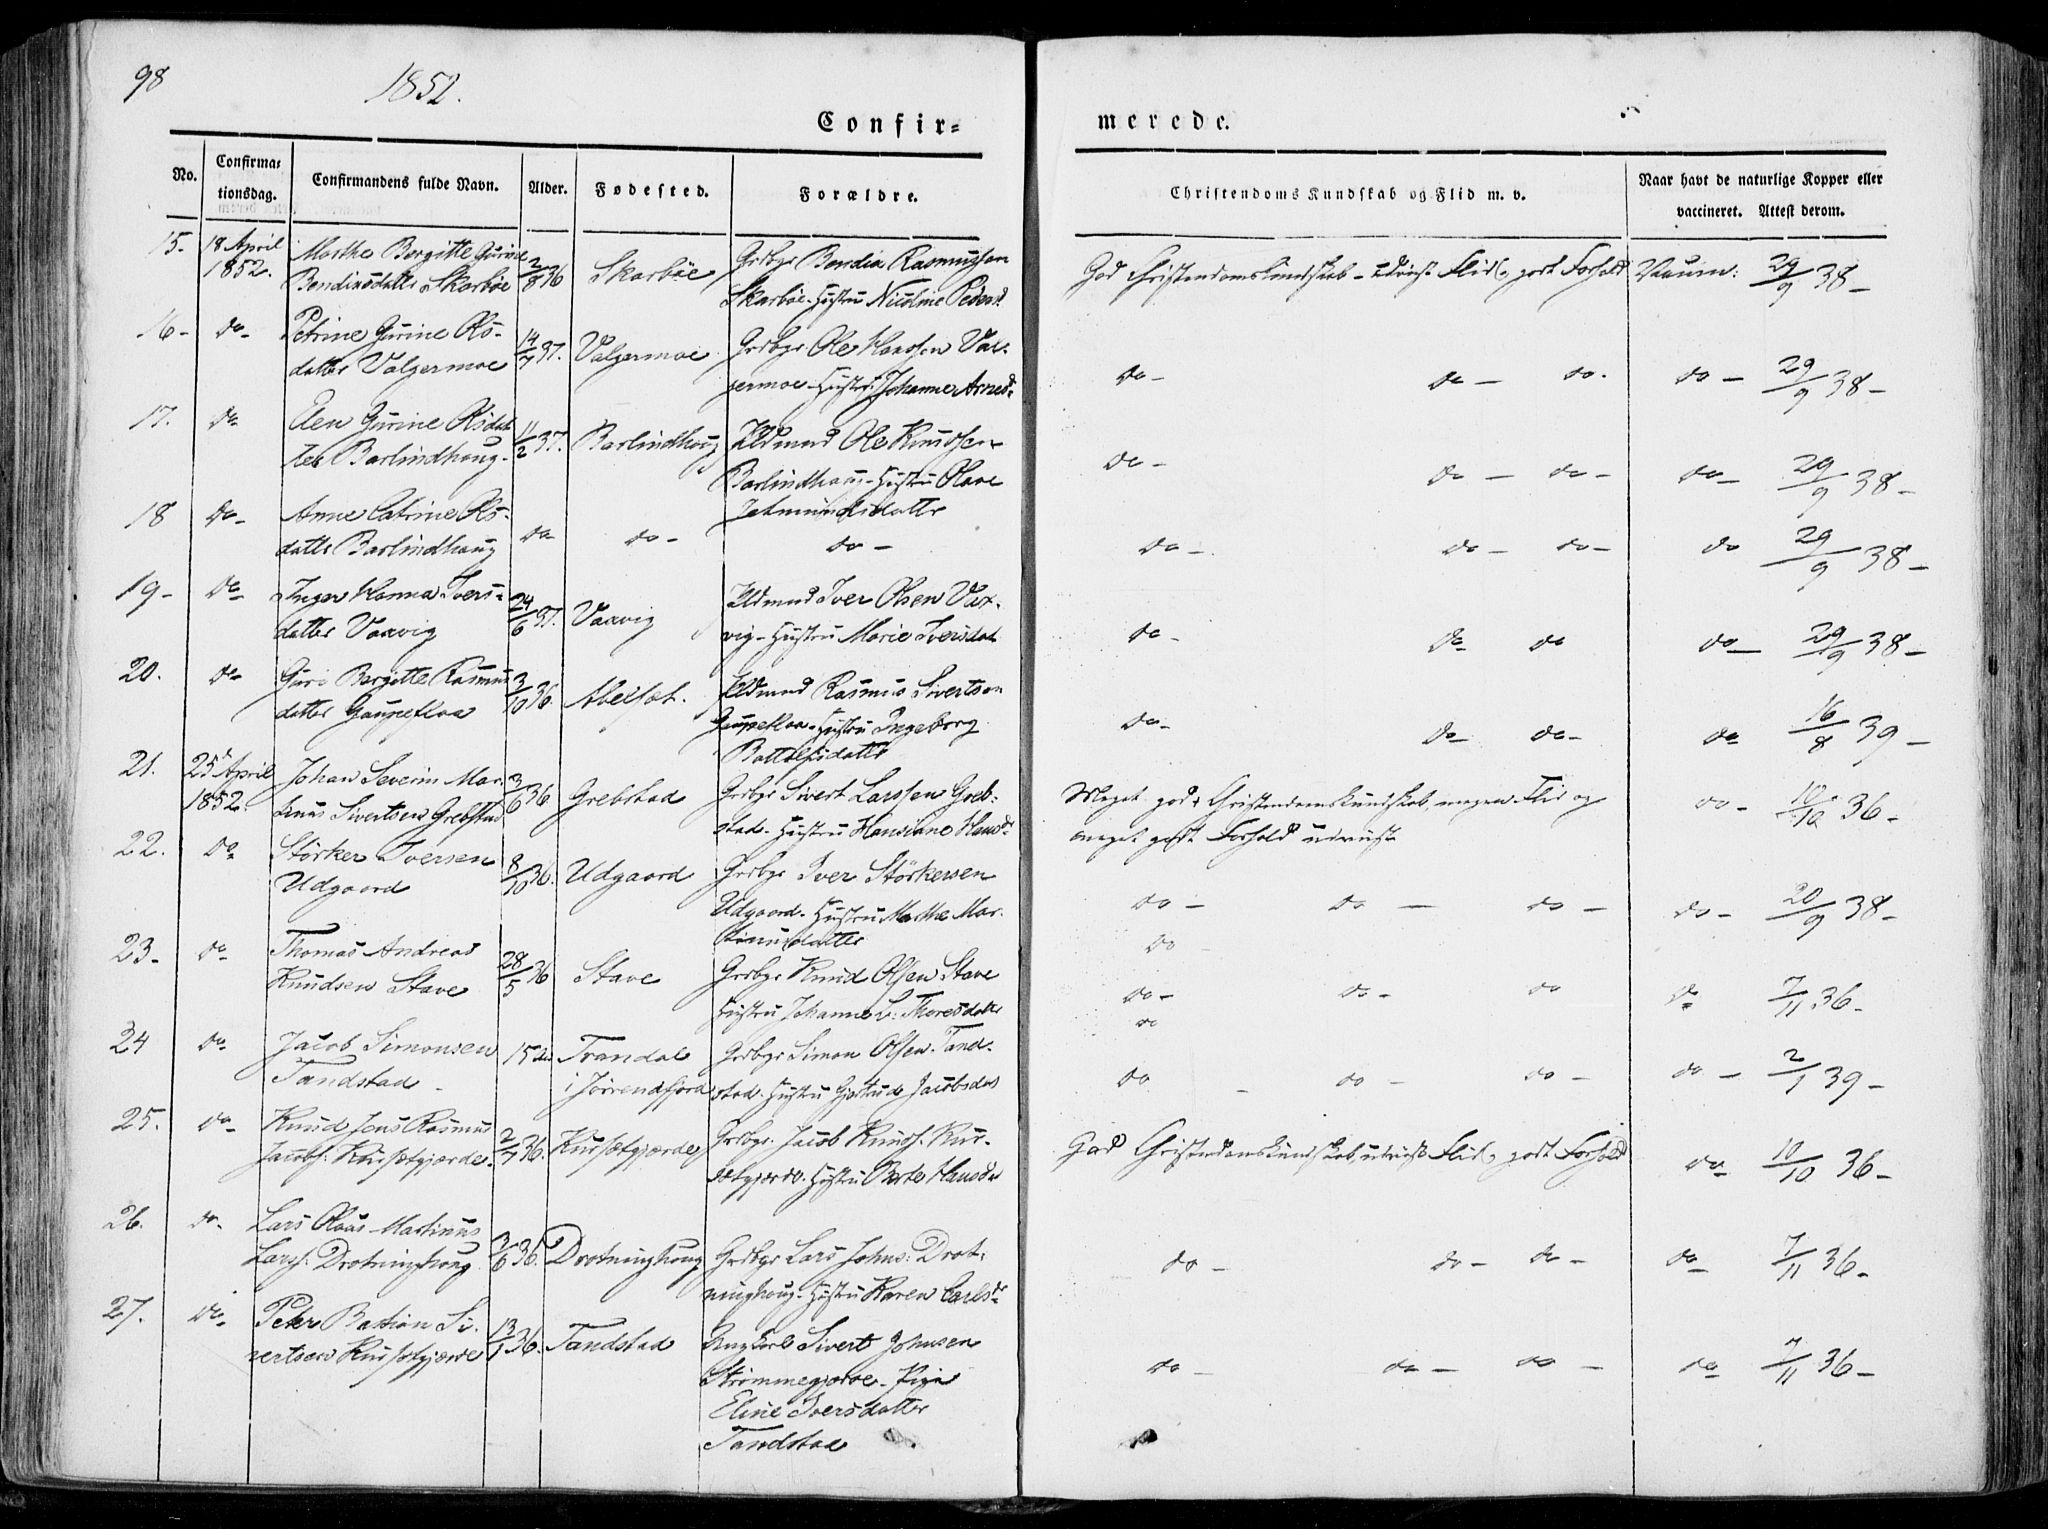 98
1852.
Confir=
merede.
No.
Confirma=
tionsdag.
Confirmandens fulde Navn.
Alder.
Fødested.
Forældre.
Christendoms Kundskab og Flid m. v.
Naar havt de naturlige Kopper eller
vaccineret. Attest derom.
15.
18 April
1852.
Marthe Bergitte Gurine
Bendixsdatter Skarbøe
2/8 36
Skarbøe
Grdbgr Bendix Rasmussen
Skarbøe-Hustru Nicoline Pedersd
God Christendomskundskab - udviist Flid, godt Forhold
Vaccin: 29/9 38-
16-
do-
Petrine Gurine Ols-
datter Valgermoe
14/7 37.
Valgermoe
Grdbgr Ole Hanssen Val-
germoe-Hustru Johanne Arnesd.
do-
do-
do.
do-
29/9 38-
17.
do
Elen Gurine Olsdat
ter Barlindhoug.
11/2 37.
Barlindhoug
Ole Knudsen
Barlindhoug-Hustru Olave
Jetmundsdatter
do-
do-
do-
do-
29/9 38-
18
do-
Anne Catrine Ols-
datter Barlindhoug
do
do-
do-
do-
do-
do-
do
29/9 38-
19-
do-
Inger Hanna Ivers-
datter Vaxvig
24/6 37.
Vaxvig
Iver Olsen Vax-
vig-Hustru Marie Iversdat
do-
do-
do
do-
29/9 38-
20.
do
Guri Bergitte Rasmus
datter Gaupefloa
3/10 36.
Abelset.
Rasmus Sivertsen
Gaupefloa-Hustru Ingeborg
Bottolfsdatter
do-
do-
do-
do
16/8 39-
21.
25 April
1852.
Johan Severin Mar-
tinus Sivertsen Grebstad
3/6 36
Grebstad
Grdbgr Sivert Larssen Greb-
stad-Hustru Hansiane Hansd
Meget god Christendomskundskab, megen Flid og
meget godt Forhold udviist
do-
10/10 36-
22.
do
Størker Iversen
Udgaard
8/10 36.
Udgaard
Grdbgr Iver Størkersen
Udgaard-Hustru Marthe Mar-
tinusdatter
do-
do-
do-
do-
20/9 38-
23-
do-
Thomas Andreas
Knudsen Stave
28/5 36
Stave
Grdbgr Knud Olsen Stave
Hustru Johanne L: Thoresdatter
do
do-
do-
do
do
7/11 36-
24
do
Jacob Simonsen
Tandstad-
15
Trandal
i Jørrendfjord
Grdbgr Simon Olsen Tand-
stad. Hustru Gjertrude Jacobsdat
do
do-
do-
do-
do-
2/1 39-
25.
do-
Knud Jens Rasmus
Jacobs: Kursetgjærde.
2/7 36.
Kursetgjærde
Grdbgr. Jacob Knuds: Kur-
setgjærde. Hustru Berte Hansd
God Christendomskundskab, udviist Flid, godt Forhold
do-
10/10 36-
26.
do-
Lars Olaus Martinus
Larss: Drotninghoug
3/6 36.
Drotninghoug
Grdbgr Lars Johns: Drot-
ninghoug-Hustru Karen Carlsd
do-
do-
do-
do-
7/11 36-
27.
do-
Peter Bastian Si-
vertsen Kursetgjærde
13/1 36.
Tandstad
Ungkarl Sivert Johnsen
Strømmegjærde-Pige
Eline Iversdatter
Tandstad
do-
do-
do-
do
7/11 36-